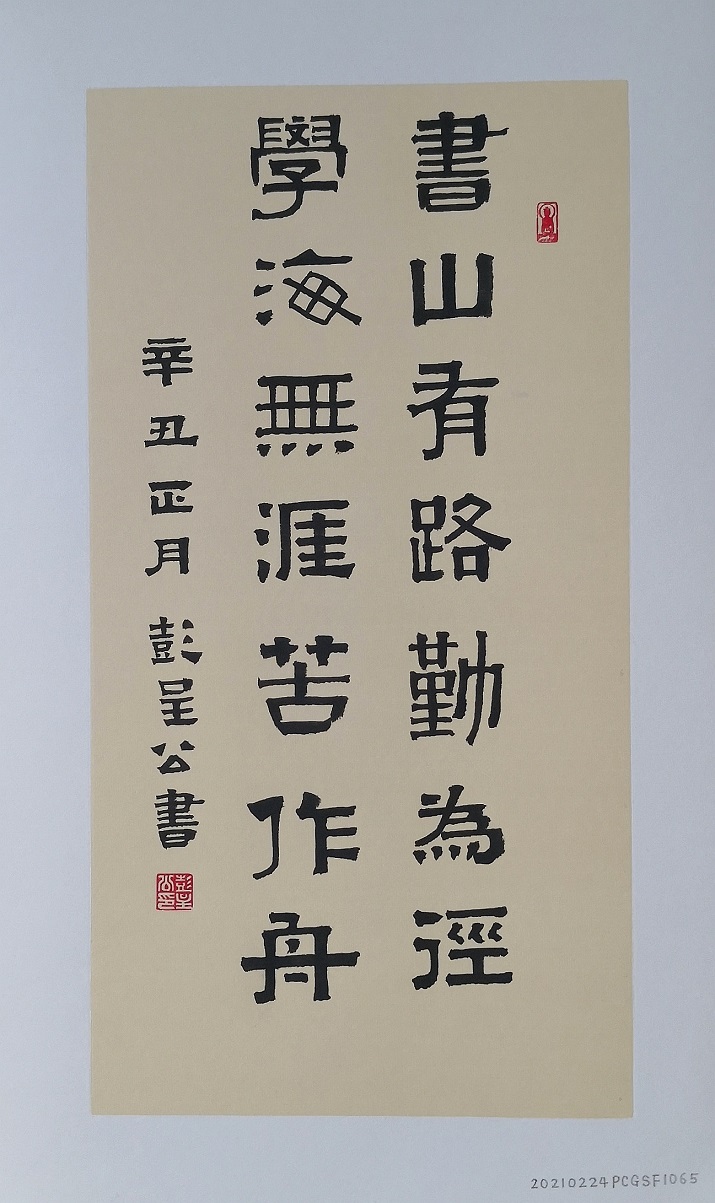 書山有路勤為徑
學海無涯苦作舟
辛丑正月 彭呈公書
彭呈公印
20210224PCGSF1065